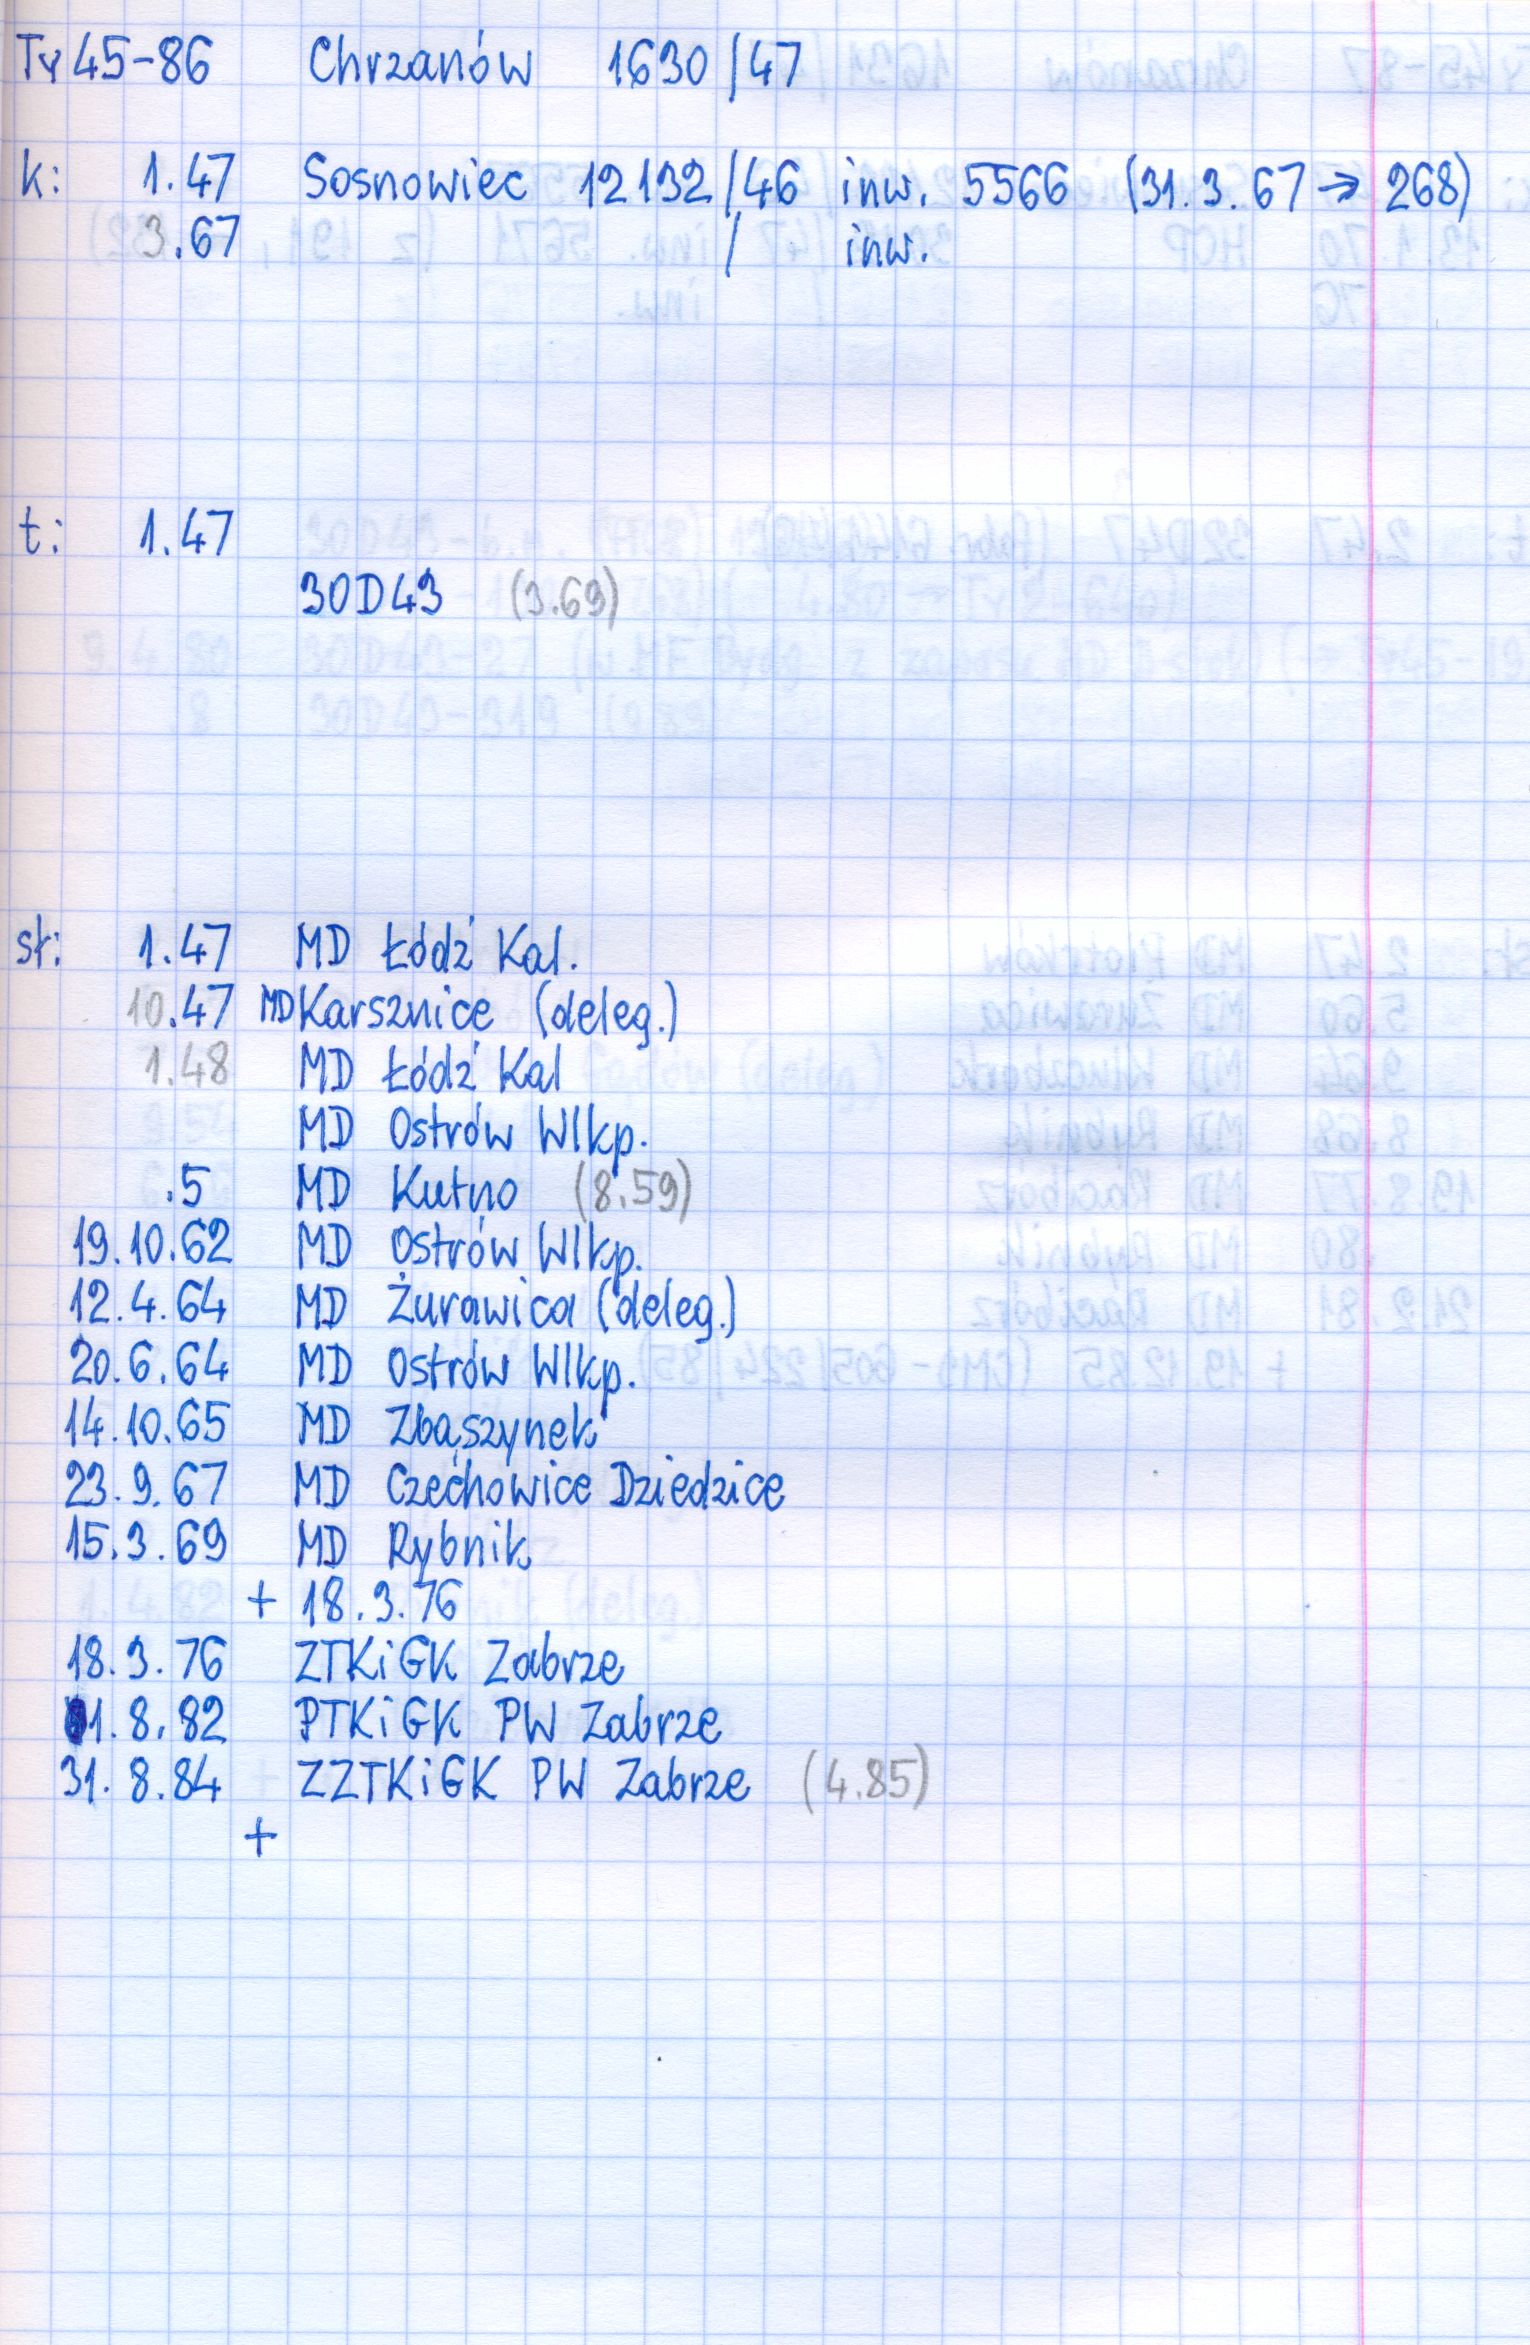 Ty45-86 Chrzanów 1630/47
k: 1.47 Sosnowiec 12132/46 inw. 5566 (31.3.67 → 268)
3.67 / inw.
t: 1.47
30D43 (3.69)
sł: 1.47 MD Łódź Kal.
10.47 MD Karsznice (deleg.)
1.48 MD Łódź Kal
MD Ostrów Wlkp.
.5 MD Kutno (8.59)
19.10.62 MD Ostrów Wlkp.
12.4.64 MD Żurawica (deleg.)
20.6.64 MD Ostrów Wlkp.
14.10.65 MD Zbąszynek
23.9.67 MD Czechowice Dziedzice
15.3.69 MD Rybnik
+ 18.3.76
18.3.76 ZTKiGK Zabrze
1.8.82 PTKiGK PW Zabrze
31.8.84 ZZTKiGK PW Zabrze (4.85)
+